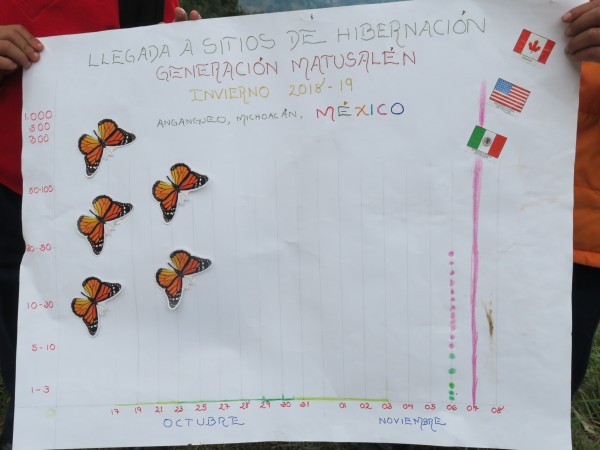 LLEGADA A SITIOS DE HIBERNACIÓN
GENERACIÓN MATUSALÉN
INVIERNO 2018-19
ANGANGUEO, MICHOACÁN. MÉXICO
1.000
50-100
10-20
5-10
1-3
0
17 19 21 23 25 27 29 30 31 01 02 03 06 07 08
OCTUBRE NOVIEMBRE